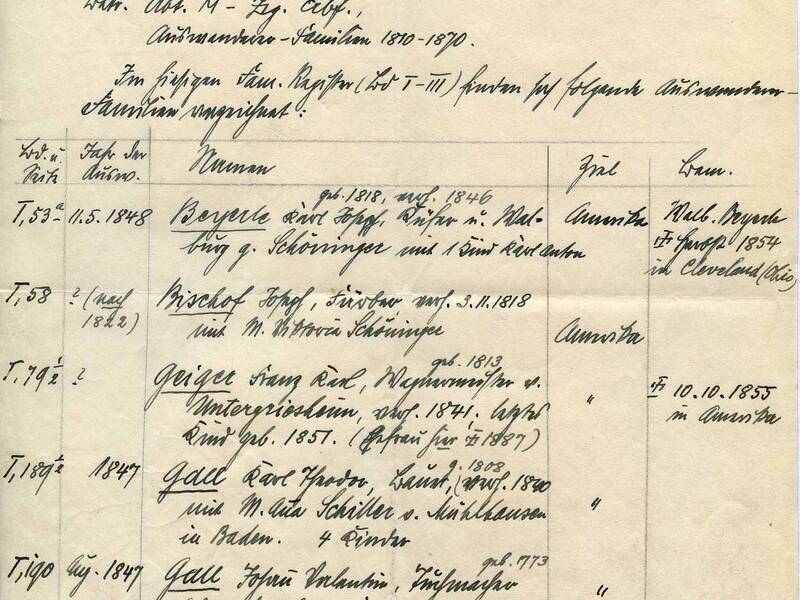 Betr. Abt. M – Zrg.
Auswanderer-Familien 1810-1870.
Im hiesigen Fam. Register (Bd I-III) finden sich folgende Auswanderer-
Familien verzeichnet:
Bd. u. Seite Jahr der Ausw. Namen Ziel Bem.
geb. 1818, verh. 1846
I, 53a 11.5. 1848 Beyerle Karl Josef, Küfer u. Wal- Amerika Walb. Beyerle
burg g. Schöninger mit 1 Kind Karl Anton Herbst 1854
in Cleveland (Ohio)
I, 58 ? (nach 1822) Bischof Josef, Färber, verh. 3.11.1818
mit M. Viktoria Schöninger Amerika
geb. 1813
I, 79½ ? Geiger Franz Karl, Wagnermeister v. " 10.10.1855
Untergriesheim, verh. 1841, letztes in Amerika
Kind geb. 1851. (Ehefrau hier 1887)
g. 1808
I, 189½ 1847 Gall Karl Theodor, Bauer, (verh. 1840
mit M. Ana Schiller v. Mühlhausen "
in Baden. 4 Kinder
geb. 1773
I, 190 Aug. 1847 Gall Johan Valentin, Tuchmacher "